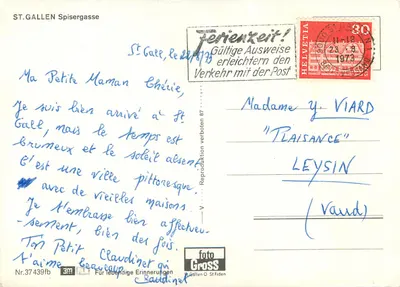 ST. GALLEN Spisergasse
St Gall, le
Ma Petite Maman Chérie,
Je suis bien arrivé à St
Gall, mais le temps est
brumeux et le soleil absent
C'est une ville pittoresque
avec de vieilles maisons.
Je t'embrasse bien affectueu-
sement, bien des fois.
Ton Petit Claudinet qui
t'aime beaucoup
Claudinet
Nr. 37 439fb
3m
Für lebendige Erinnerungen
Reproduktion verboten
V
foto
Gross
St. Gallen
Ferienzeit!
Gültige Ausweise
erleichtern den
Verkehr mit der Post
1973
HELVETIA
30
Madame y. VIARD
"PLAISANCE"
LEYSIN
(Vaud)